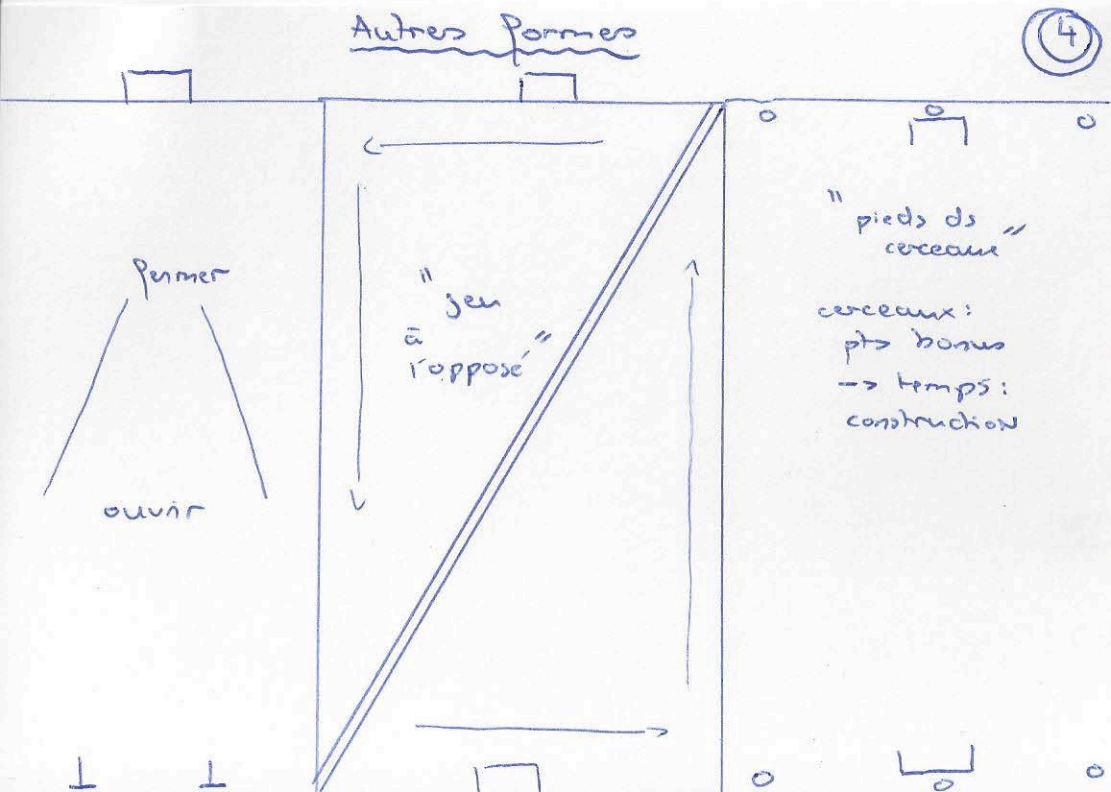 Autres formes
4
fermer
ouvrir
"jeu
à
l'opposé"
"pieds ds
cerceaux"
cerceaux:
pts bonus
--> temps:
construction